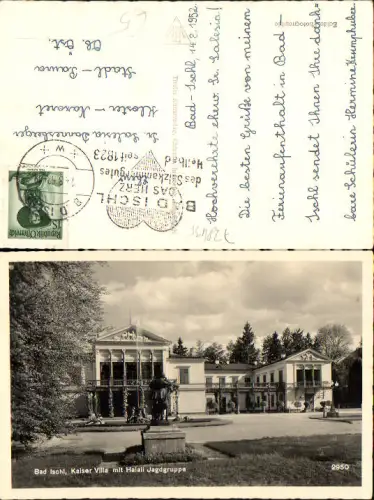 Bad-Ischl, 14.2.1952
Hochverehrte ehrw. Sr. Salesia!
Die besten Grüße von meinen
Ferienaufenthalt in Bad-
Ischl sendet Ihnen Ihre dank-
bare Schülerin Hermine
Sr. Salesia
Kloster - Nazaret
Stadl - Paura
Ob. Öst.
BAD ISCHL
DAS HERZ
des Salzkammergutes
Heilbad
seit 1823
Republik Österreich
Bad Ischl, Kaiser Villa mit Halali Jagdgruppe
2950